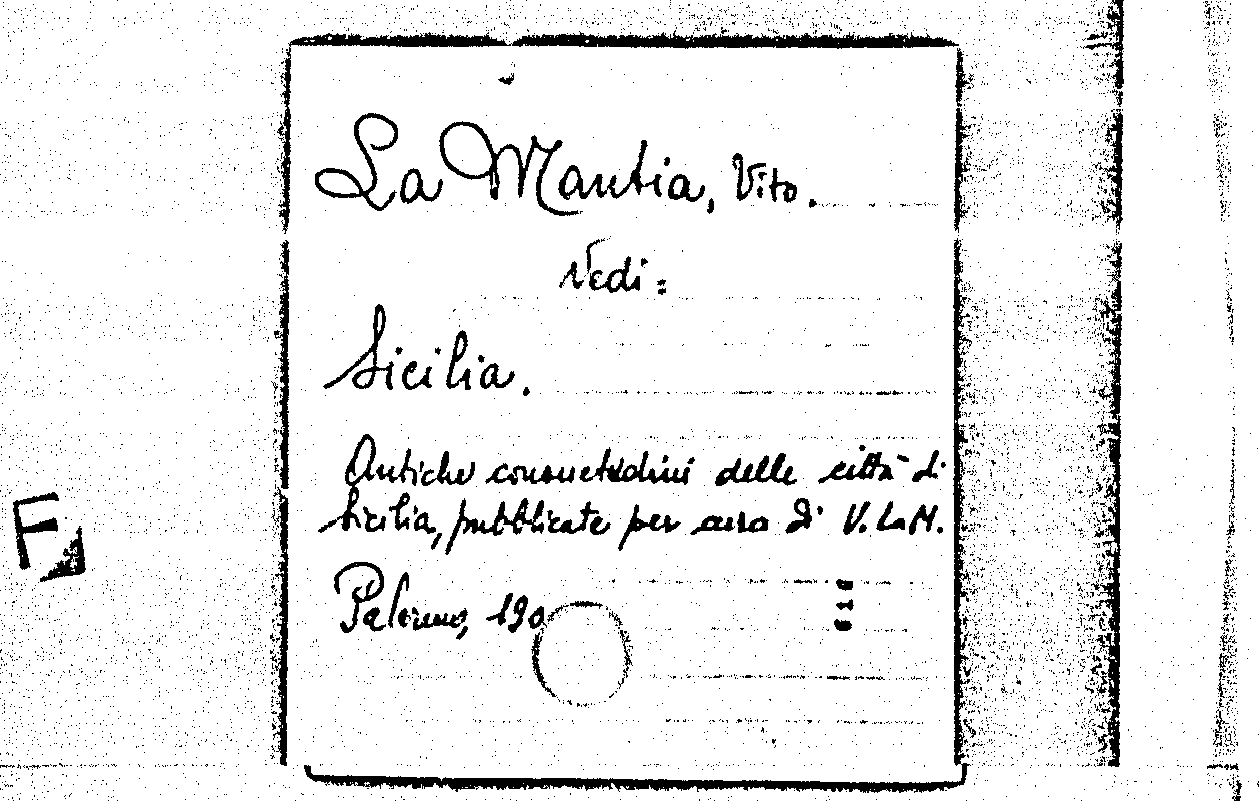 La Mantia, Vito.
Vedi:
Sicilia.
Antiche consuetudini delle città di
Sicilia, pubblicate per cura di V. La M.
Palermo, 190
F